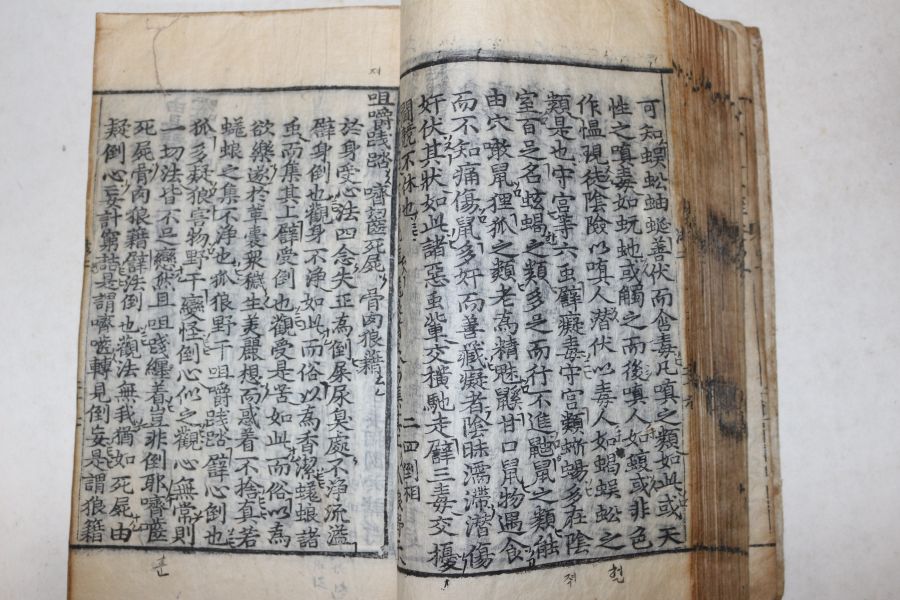 可知蜈蚣蚰蜒善伏而含毒凡嗔之類如此或天
性之嗔毒如蚖虵或觸之而後嗔人如蝮或非色
作慍現徒陰險以嗔人潛伏以毒人如蝎蜈蚣之
類是也守宮等六虫譬癡毒守宮類蜥蜴多在陰
室百足名蚿蝎之類多足而行不進鼬鼠之類能
由穴噉鼠狸狐之類老為精魅鼷甘口鼠物遇食
而不知痛傷鼠多奸而善藏癡者陰昧濡滯潛傷
奸伏其狀如此諸惡虫輩交橫馳走譬三毒交擾
二四倒相
咀嚼踐踏嚌齧死屍骨肉狼藉
於身受心法四念失正為倒屎尿臭處不淨流溢
譬身倒也觀身不淨如此而俗以為香潔蜣蜋諸
虫而集其上譬受倒也觀受是苦如此而俗以為
欲樂遂於革囊眾穢生美麗想而惑着不捨真若
蜣蜋之集不淨也狐狼野干咀嚼踐踏譬心倒也
狐多疑狼害物野干變怪倒心似之觀心無常則
一切法皆不足戀然且咀踐纏着豈非倒耶嚌齧
死屍骨肉狼藉譬法倒也觀法無我猶如死屍由
疑倒心妄計窮詰是謂嚌齧轉見倒妄是謂狼籍